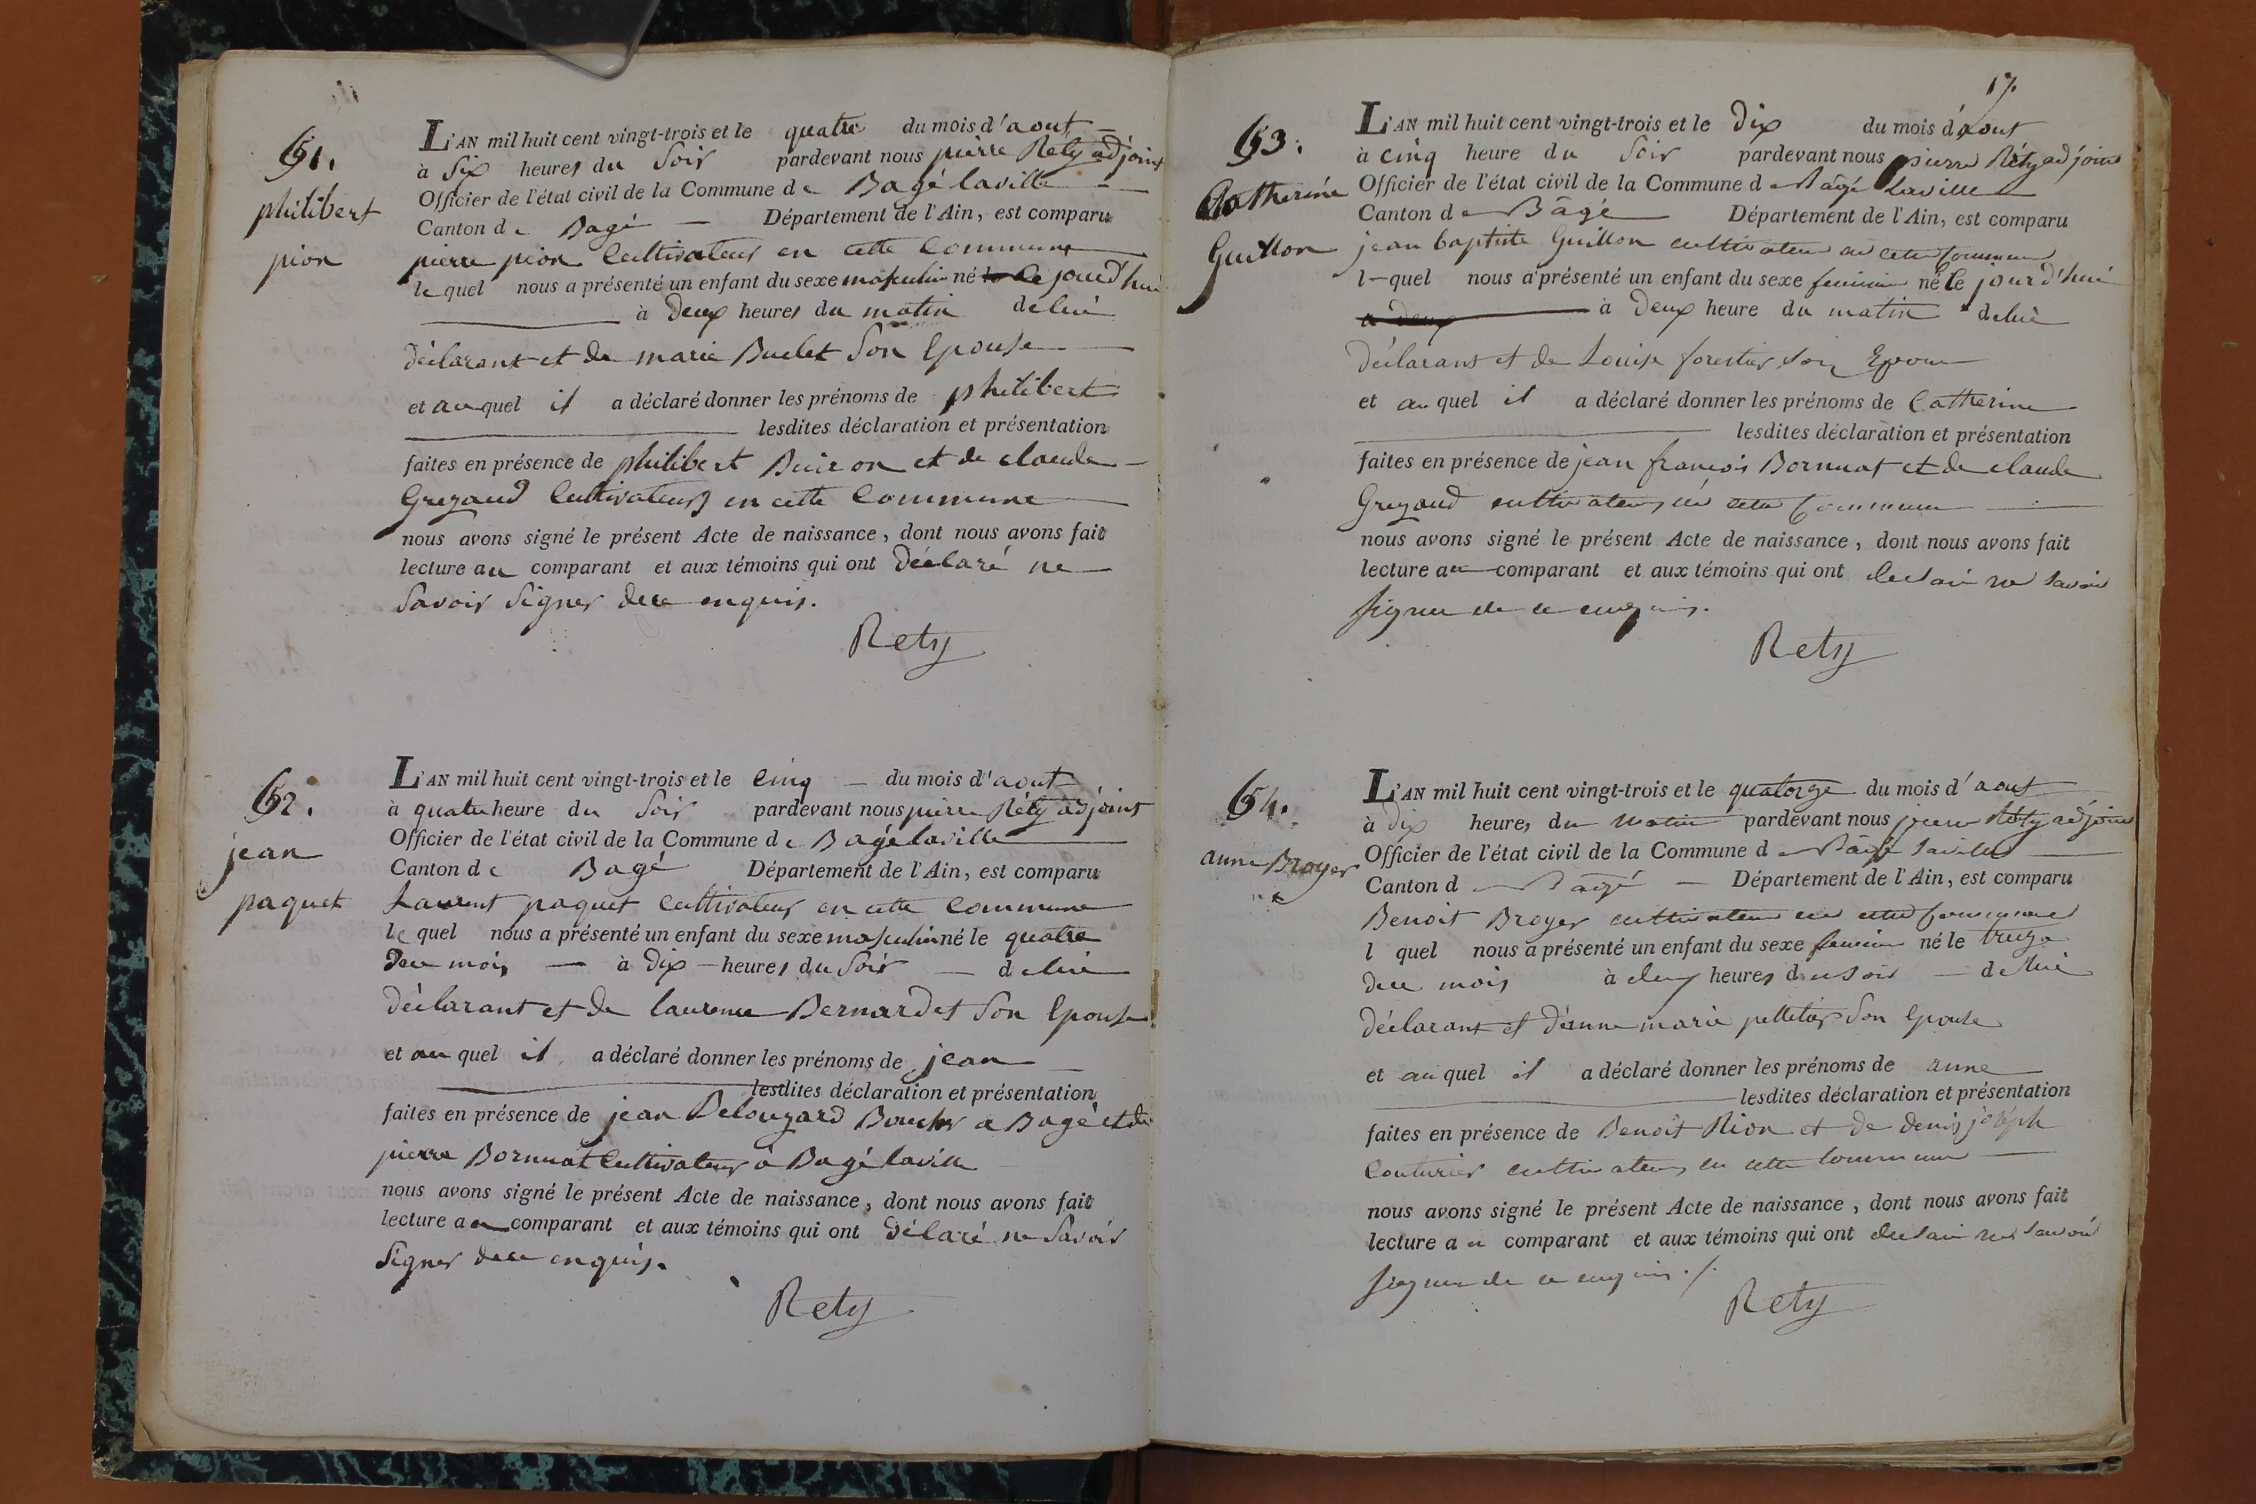 61.
philibert
pion
L'AN mil huit cent vingt-trois et le quatre du mois d'aout
à Six heures du Soir pardevant nous pierre Rety adjoint
Officier de l'état civil de la Commune de Bagé laville
Canton de Bagé Département de l'Ain, est comparu
pierre pion Cultivateur en cette Commune
le quel nous a présenté un enfant du sexe masculin né ce jourd'hui
à Deux heures du matin de lui
Déclarant et de marie Buclet Son Epouse
et au quel il a déclaré donner les prénoms de philibert
lesdites déclaration et présentation
faites en présence de philibert et de claude
Grezaud Cultivateurs en cette Commune
nous avons signé le présent Acte de naissance, dont nous avons fait
lecture au comparant et aux témoins qui ont Déclaré ne
Savoir Signer de ce enquis.
Rety
62.
jean
paquet
L'AN mil huit cent vingt-trois et le Cinq du mois d'aout
à quatre heure du Soir pardevant nous pierre Réty adjoint
Officier de l'état civil de la Commune de Bagé laville
Canton de Bagé Département de l'Ain, est comparu
Laurent paquet Cultivateur en cette Commune
le quel nous a présenté un enfant du sexe masculin né le quatre
De ce mois à Dix heures du Soir de lui
Déclarant et De laurence Bernardet Son Epouse
et au quel il a déclaré donner les prénoms de jean
lesdites déclaration et présentation
faites en présence de jean Delouzard Boucher a Bagé et de
pierre Bornuat Cultivateur à Bagé laville
nous avons signé le présent Acte de naissance, dont nous avons fait
lecture au comparant et aux témoins qui ont Déclaré ne Savoir
Signer de ce enquis.
Rety
17.
63.
Catherine
Guillon
L'AN mil huit cent vingt-trois et le Dix du mois d'aout
à cinq heure du Soir pardevant nous pierre Réty adjoint
Officier de l'état civil de la Commune de Bâgé Laville
Canton de Bâgé Département de l'Ain, est comparu
jean baptiste Guillon cultivateur en cette Commune
l-quel nous a présenté un enfant du sexe feminin né le jourd'hui
a deux à Deux heure du matin de lui
Déclarant et de Louise forestier Son Epouse
et au quel il a déclaré donner les prénoms de Catherine
lesdites déclaration et présentation
faites en présence de jean françois Bornuat et de claude
Grezaud cultivateurs en cette Commune
nous avons signé le présent Acte de naissance, dont nous avons fait
lecture au comparant et aux témoins qui ont declaré ne savoir
signer de ce enquis.
Rety
64.
anne Broyer
L'AN mil huit cent vingt-trois et le quatorze du mois d'aout
à Dix heures du matin pardevant nous pierre Réty adjoint
Officier de l'état civil de la Commune de Bâgé Laville
Canton de Bâgé Département de l'Ain, est comparu
Benoit Broyer cultivateur en cette Commune
l quel nous a présenté un enfant du sexe feminin né le treize
De ce mois à deux heures du soir de lui
Déclarant et d'anne marie pelletier Son Epouse
et au quel il a déclaré donner les prénoms de anne
lesdites déclaration et présentation
faites en présence de Benoît Pion et de denis joseph
Couturier cultivateurs en cette Commune
nous avons signé le présent Acte de naissance, dont nous avons fait
lecture au comparant et aux témoins qui ont declaré ne savoir
signer de ce enquis ./.
Rety